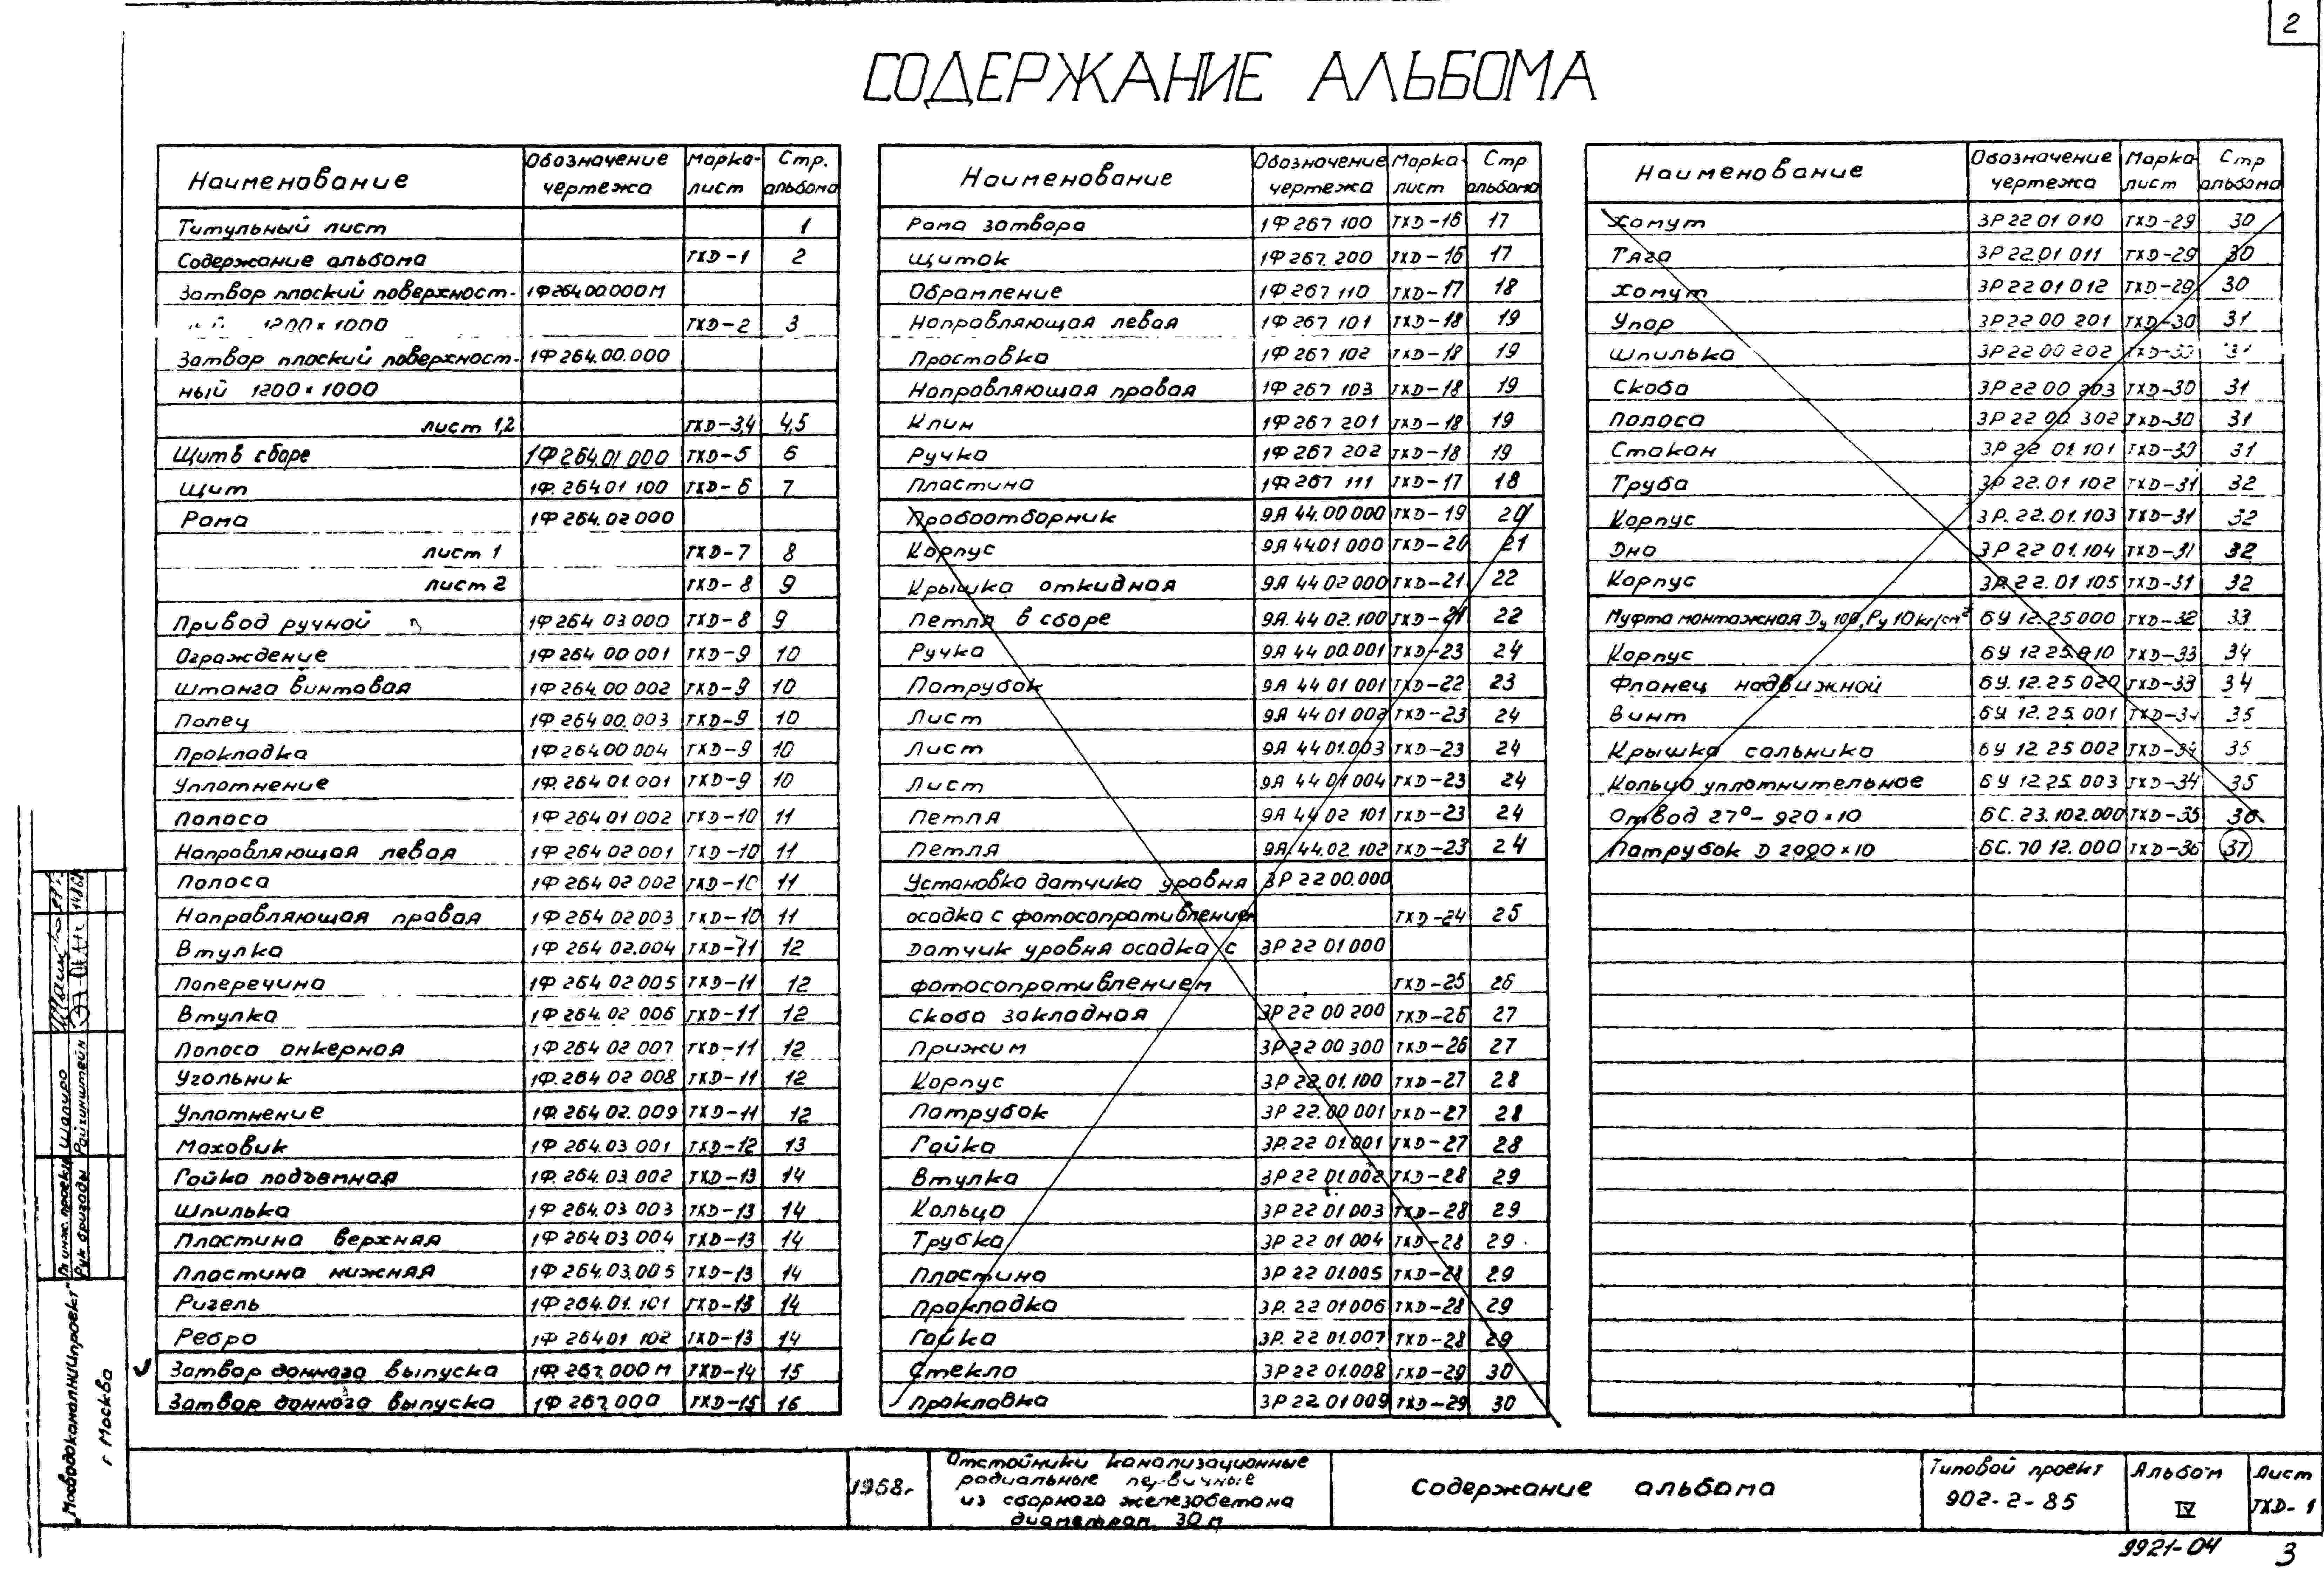 2
СОДЕРЖАНИЕ АЛЬБОМА
Наименование Обозначение чертежа Марка-лист Стр. альбома
Титульный лист 1
Содержание альбома ТХD-1 2
Затвор плоский поверхност- 1Ф264.00.000М
1200×1000 ТХD-2 3
Затвор плоский поверхност- 1Ф264.00.000
ный 1200×1000
лист 1,2 ТХD-3,4 4,5
Щит в сборе 1Ф264.01 000 ТХD-5 6
Щит 1Ф.264.01 100 ТХD-6 7
Рама 1Ф264.02 000
лист 1 ТХD-7 8
лист 2 ТХD-8 9
Привод ручной 1Ф264 03 000 ТХD-8 9
Ограждение 1Ф264 00 001 ТХD-9 10
Штанга винтовая 1Ф264.00 002 ТХD-9 10
Палец 1Ф264 00.003 ТХD-9 10
Прокладка 1Ф264 00 004 ТХD-9 10
Уплотнение 1Ф.264 01.001 ТХD-9 10
Полоса 1Ф264 01 002 ТХD-10 11
Направляющая левая 1Ф264 02 001 ТХD-10 11
Полоса 1Ф264 02 002 ТХD-10 11
Направляющая правая 1Ф264 02 003 ТХD-10 11
Втулка 1Ф264 02.004 ТХD-11 12
Поперечина 1Ф264 02 005 ТХD-11 12
Втулка 1Ф264.02 006 ТХD-11 12
Полоса анкерная 1Ф264 02 007 ТХD-11 12
Угольник 1Ф.264 02 008 ТХD-11 12
Уплотнение 1Ф.264 02.009 ТХD-11 12
Маховик 1Ф264.03 001 ТХD-12 13
Гайка подъемная 1Ф.264.03 002 ТХD-13 14
Шпилька 1Ф264.03 003 ТХD-13 14
Пластина верхняя 1Ф264 03 004 ТХD-13 14
Пластина нижняя 1Ф264.03.005 ТХD-13 14
Ригель 1Ф264.01.101 ТХD-13 14
Ребро 1Ф264 01 102 ТХD-13 14
Затвор донного выпуска 1Ф.267.000М ТХD-14 15
Затвор донного выпуска 1Ф267.000 ТХD-15 16
Наименование Обозначение чертежа Марка лист Стр альбома
Рама затвора 1Ф267 100 ТХD-16 17
Щиток 1Ф267.200 ТХD-16 17
Обрамление 1Ф267 110 ТХD-17 18
Направляющая левая 1Ф267 101 ТХD-18 19
Проставка 1Ф267 102 ТХD-18 19
Направляющая правая 1Ф267 103 ТХD-18 19
Клин 1Ф267 201 ТХD-18 19
Ручка 1Ф267 202 ТХD-18 19
Пластина 1Ф267 111 ТХD-17 18
Пробоотборник 9Я 44.00 000 ТХD-19 20
Корпус 9Я 44.01 000 ТХD-20 21
Крышка откидная 9Я 44 02 000 ТХD-21 22
Петля в сборе 9Я.44 02.100 ТХD-21 22
Ручка 9Я 44 00.001 ТХD-23 24
Патрубок 9Я 44 01 001 ТХD-22 23
Лист 9Я 44 01 002 ТХD-23 24
Лист 9Я 44 01.003 ТХD-23 24
Лист 9Я 44 01 004 ТХD-23 24
Петля 9Я 44 02 101 ТХD-23 24
Петля 9Я.44.02.102 ТХD-23 24
Установка датчика уровня 3Р 22 00.000
осадка с фотосопротивлением ТХD-24 25
Датчик уровня осадка с 3Р 22 01 000
фотосопротивлением ТХD-25 26
Скоба закладная 3Р 22 00 200 ТХD-26 27
Прижим 3Р 22 00 300 ТХD-26 27
Корпус 3Р 22.01.100 ТХD-27 28
Патрубок 3Р 22.00 001 ТХD-27 28
Гайка 3Р.22 01 001 ТХD-27 28
Втулка 3Р 22 01.002 ТХD-28 29
Кольцо 3Р 22 01 003 ТХD-28 29
Трубка 3Р 22 01 004 ТХD-28 29
Пластина 3Р 22 01.005 ТХD-28 29
Прокладка 3Р. 22 01 006 ТХD-28 29
Гайка 3Р. 22 01.007 ТХD-28 29
Стекло 3Р 22 01.008 ТХD-29 30
Прокладка 3Р 22 01 009 ТХD-29 30
Наименование Обозначение чертежа Марка лист Стр альбома
Хомут 3Р 22 01 010 ТХD-29 30
Тяга 3Р 22.01 011 ТХD-29 30
Хомут 3Р 22 01 012 ТХD-29 30
Упор 3Р 22 00 201 ТХD-30 31
Шпилька 3Р 22 00 202 ТХD-30 31
Скоба 3Р 22 00 203 ТХD-30 31
Полоса 3Р 22 00 302 ТХD-30 31
Стакан 3Р 22 01.101 ТХD-30 31
Труба 3Р 22.01 102 ТХD-31 32
Корпус 3Р. 22.01.103 ТХD-31 32
Дно 3Р 22 01.104 ТХD-31 32
Корпус 3Р.22.01 105 ТХD-31 32
Муфта монтажная Dу 100, Ру 10 кг/см² 6У 12.25 000 ТХD-32 33
Корпус 6У 12 25.010 ТХD-33 34
Фланец надвижной 6У. 12.25 020 ТХD-33 34
Винт 6У 12.25.001 ТХD-34 35
Крышка сальника 6У 12 25 002 ТХD-34 35
Кольцо уплотнительное 6У 12.25 003 ТХD-34 35
Отвод 27°- 920×10 6С. 23.102.000 ТХD-35 36
Патрубок D 2020×10 6С. 70 12.000 ТХD-36 37
Мосводоканалниипроект г Москва
Гл инж. проекта Шапиро
Рук бригады Райхинштейн
1968г
Отстойники канализационные
радиальные первичные
из сборного железобетона
диаметром 30 м
Содержание альбома
Типовой проект
902-2-85
Альбом
IV
Лист
ТХD-1
9921-04
3